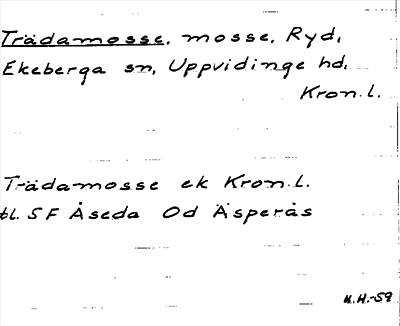 Trädamosse, mosse, Ryd,
Ekeberga sn, Uppvidinge hd,
Kron.l.
Trädamosse ek Kron.l.
bl. 5 F Åseda Od Äsperås
K.H.-59